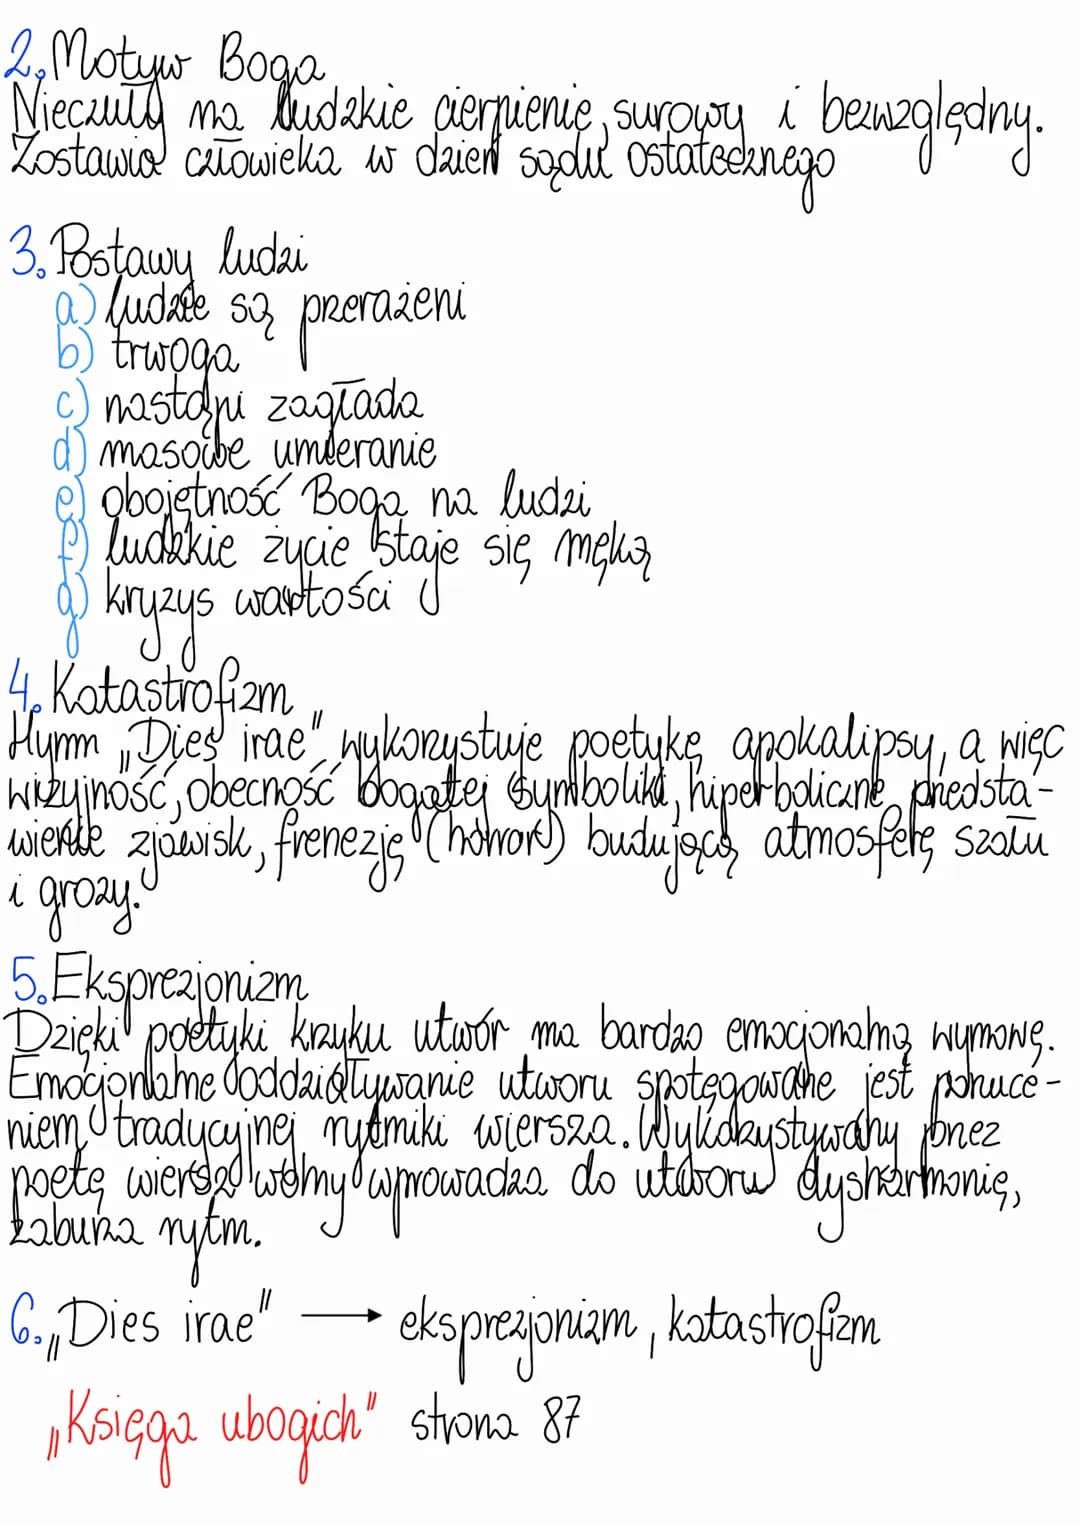 2. Motyw Boga
Nieczuły na ludzkie cierpienie, surowy i bezwzględny.
Zostawia człowieka w dzień sądu Ostatecznego
3. Postawy ludzi
a) ludzie są przerażeni
b) trwoga
c) nastąpi zagłada
d) masowe umieranie
e) obojętność Boga na ludzi
f) ludzkie życie staje się męką
g) kryzys wartości
4. Katastrofizm
Hymn „Dies irae" wykorzystuje poetykę apokalipsy, a więc
wizyjność, obecność bogatej symboliki, hiperboliczne przedsta-
wienie zjawisk, frenezję (horror) budującą atmosferę szału
i grozy.
5. Ekspresjonizm
Dzięki poetyki krzyku utwór ma bardzo emocjonalną wymowę.
Emocjonalne oddziaływanie utworu spotęgowane jest porzuce-
niem tradycyjnej rytmiki wiersza. Wykorzystywany przez
poetę wiersz wolny wprowadza do utworu dysharmonię,
zaburza rytm.
6. „Dies irae" → ekspresjonizm, katastrofizm
„Księga ubogich" strona 87